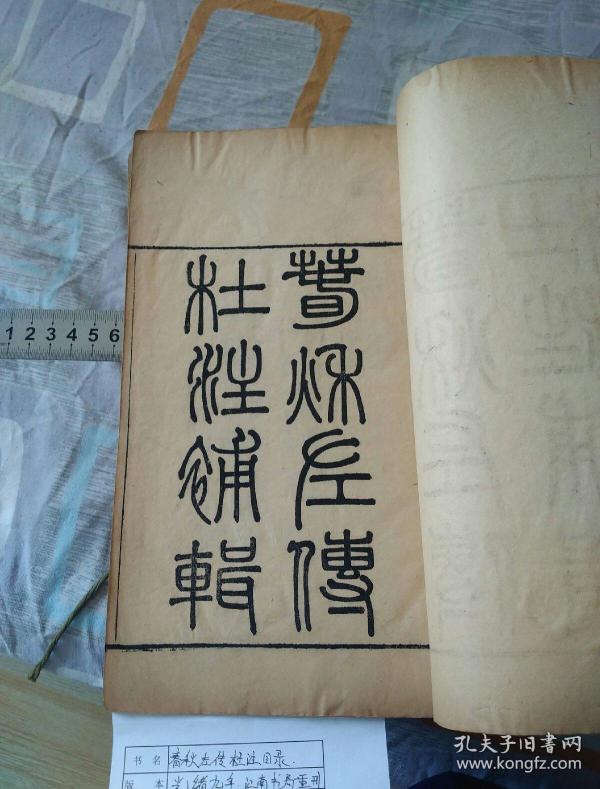 春秋左傳
杜注補輯
1 2 3 4 5 6 7 8
书名 春秋左传杜注目录.
版本 光绪九年江南书局重刊
孔夫子旧书网
www.kongfz.com